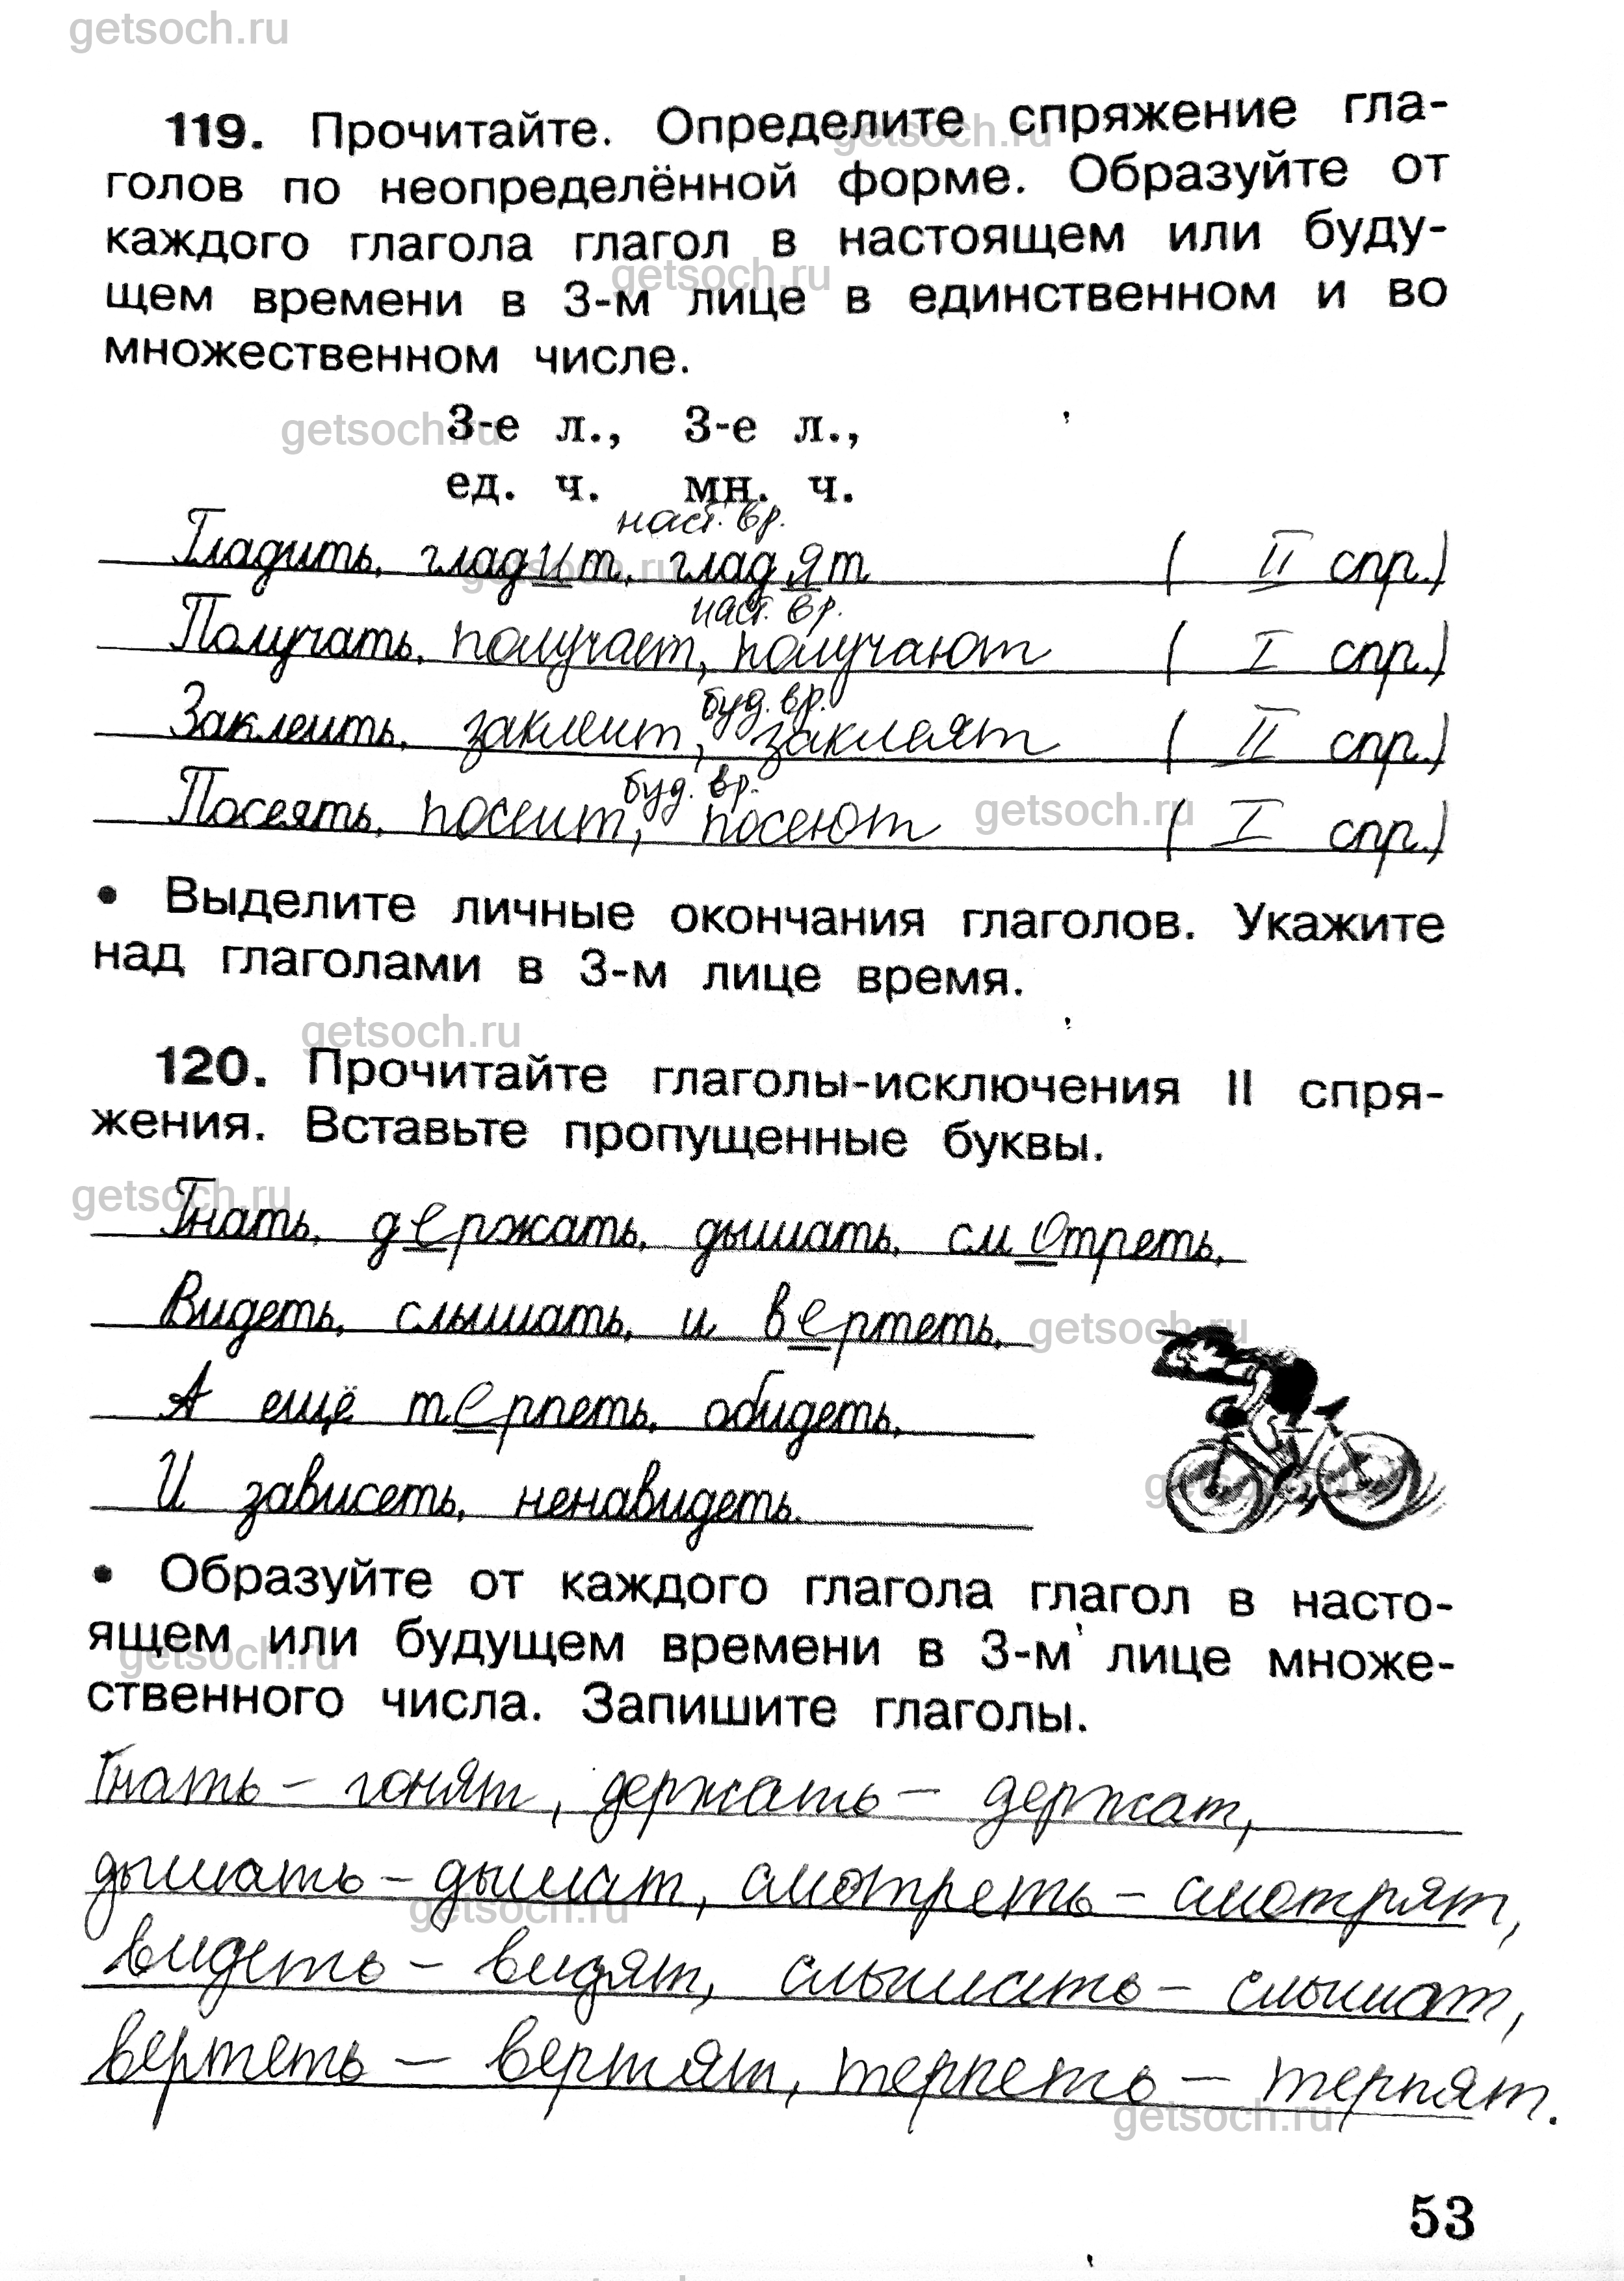 getsoch.ru
119. Прочитайте. Определите спряжение гла-
getsoch.ru
голов по неопределённой форме. Образуйте от
каждого глагола глагол в настоящем или буду-
getsoch.ru
щем времени в 3-м лице в единственном и во
множественном числе.
3-е л., 3-е л.,
getsoch.ru
ед. ч. мн. ч.
наст. вр.
Гладить, гладит, гладят ( II спр.)
getsoch.ru
наст. вр.
Получать, получает, получают ( I спр.)
буд. вр.
Заклеить, заклеит, заклеят ( II спр.)
буд. вр.
Посеять, посеит, посеют ( I спр.)
getsoch.ru
• Выделите личные окончания глаголов. Укажите
над глаголами в 3-м лице время.
getsoch.ru
120. Прочитайте глаголы-исключения II спря-
жения. Вставьте пропущенные буквы.
getsoch.ru
Гнать, держать, дышать, смотреть,
Видеть, слышать, и вертеть,
getsoch.ru
А ещё терпеть, обидеть,
И зависеть, ненавидеть.
getsoch.ru
• Образуйте от каждого глагола глагол в насто-
ящем или будущем времени в 3-м лице множе-
getsoch.ru
ственного числа. Запишите глаголы.
Гнать – гонят, держать – держат,
дышать – дышат, смотреть – смотрят,
getsoch.ru
видеть – видят, слышать – слышат,
вертеть – вертят, терпеть – терпят.
getsoch.ru
53